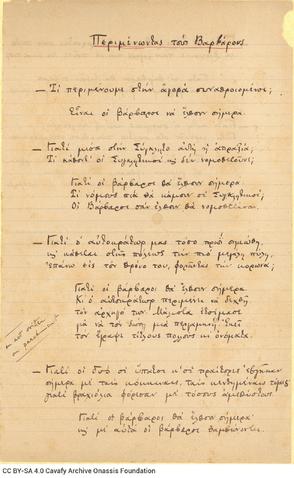 Περιμένοντας τους Βαρβάρους
— Τι περιμένουμε στην αγορά συναθροισμένοι;
Είναι οι βάρβαροι να έλθουν σήμερα.
— Γιατί μέσα στην Σύγκλητο αυτή η απραξία;
Τι κάθοντ' οι Συγκλητικοί και δεν νομοθετούνε;
Γιατί οι βάρβαροι θα έλθουν σήμερα.
Τι νόμους πια θα κάμουν οι Συγκλητικοί;
Οι Βάρβαροι σαν έλθουν θα νομοθετήσουν.
— Γιατί ο αυτοκράτωρ μας τόσο πρωί σηκώθη,
και κάθεται στης πόλεως την πιο μεγάλη πύλη,
επάνω εις τον θρόνο του, φορώντας την κορώνα;
Γιατί οι βάρβαροι θα έλθουν σήμερα.
Κι ο αυτοκράτωρ περιμένει να δεχθή
τον αρχηγό των. Μάλιστα ετοίμασε
για να τον δώση μια περγαμηνή. Εκεί
τον έγραψε τίτλους πολλούς κι ονόματα.
— Γιατί οι δυο οι ύπατοι κ' οι πραίτορες εβγήκαν
σήμερα με ταις κόκκιναις, ταις κεντημέναις τόγαις·
γιατί βραχιόλια φόρεσαν με τόσους αμεθύστους
Γιατί οι βάρβαροι θα έλθουν σήμερα·
και με αυτά οι βάρβαροι θαμβώνονται.
CC BY-SA 4.0 Cavafy Archive Onassis Foundation